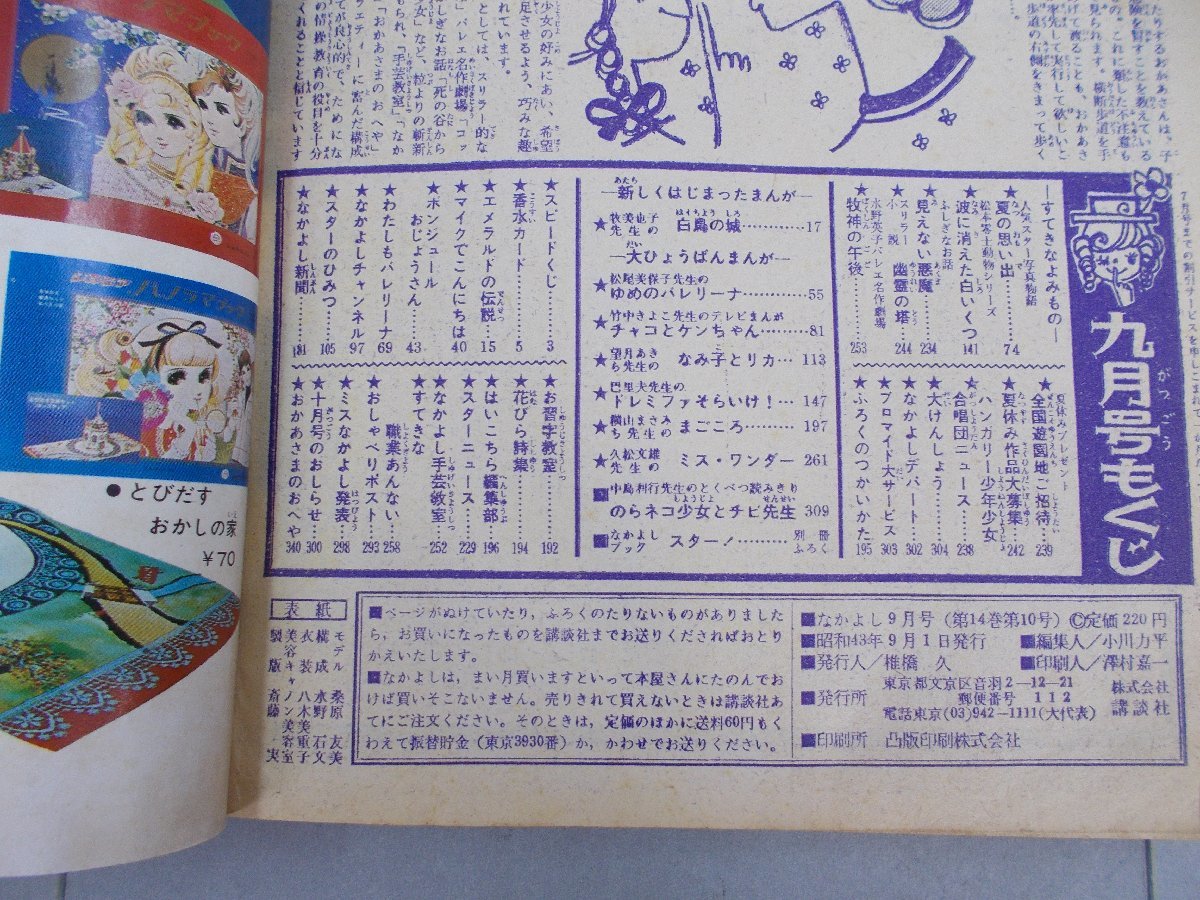 たりするおかあさんは、子
険を賢すことを教えている
の。これに類した不注意も
見られます。横断歩道を手
げて渡ることも、おかあさ
率先して実行して欲しいと
歩道の右側をきまって歩く
少女の好みにあい、希望
足させるよう、巧みな趣
れています。
としては、スリラー的な
しぎなお話「死の谷から
」バレエ名作劇場「コッ
少女」など、粒よりの新
められ、「手芸教室」「なか
「おかあさまのおへや」
ラエティーに富んだ構成
てが良心的で、ためにな
の情操教育の役目を十分
くれることと信じています
九月号もくじ
がつごう
―すてきなよみもの―
人気スター写真物語
★夏の思い出……74
松本零士動物シリーズ
★波に消えた白いくつ 141
ふしぎなお話
★見えない悪魔……234
★スリラー小説 幽霊の塔…244
水野英子バレエ名作劇場
★牧神の午後……253
夏休みプレゼント
★全国遊園地ご招待…239
★夏休み作品大募集…242
★ハンガリー少年少女
合唱団ニュース……238
★大けんしょう……304
★なかよしデパート…302
★ブロマイド大サービス 303
★ふろくのつかいかた 195
―新しくはじまったまんが―
★牧美也子先生の 白鳥の城………17
―大ひょうばんまんが―
★松尾美保子先生の
ゆめのバレリーナ………55
★竹中きよこ先生のテレビまんが
チャコとケンちゃん……81
★望月あきら先生の なみ子とリカ…113
★巴里夫先生の
ドレミファそらいけ！…147
★横山まさみち先生の まごころ…197
★久松文雄先生の ミス・ワンダー 261
■中島利行先生のとくべつ読みきり
のらネコ少女とチビ先生 309
■なかよしブック スター！………別冊ふろく
★スピードくじ……3
★香水カード……5
★エメラルドの伝説…15
★マイクでこんにちは 40
★ボンジュール
おじょうさん……43
★わたしもバレリーナ 69
★なかよしチャンネル 97
★スターのひみつ…105
★なかよし新聞……181
★お習字教室……192
★花びら詩集……194
★はいこちら編集部…196
★スターニュース…229
★なかよし手芸教室…252
★すてきな
職業あんない…258
★おしゃべりポスト…293
★ミスなかよし発表…298
★十月号のおしらせ…300
★おかあさまのおへや 340
表紙
モデル 桑原友美
構成 水野石文
衣装 八木重子
美容 キャノン美容室
製版 斎藤一実
■ページがぬけていたり，ふろくのたりないものがありました
ら，お買いになったものを講談社までお送りくださればおとり
かえいたします。
■なかよしは，まい月買いますといって本屋さんにたのんでお
けば買いそこないません。売りきれて買えないときは講談社あ
てにご注文ください。そのときは，定価のほかに送料60円もく
わえて振替貯金（東京3930番）か，かわせでお送りください。
■なかよし9月号（第14巻第10号）Ⓒ定価220円
■昭和43年9月1日発行 ■編集人／小川力平
■発行人／椎橋 久 ■印刷人／澤村嘉一
■発行所 東京都文京区音羽2-12-21
郵便番号 112
電話東京(03)942-1111(大代表)
株式会社 講談社
■印刷所 凸版印刷株式会社
●とびだす
おかしの家
￥70